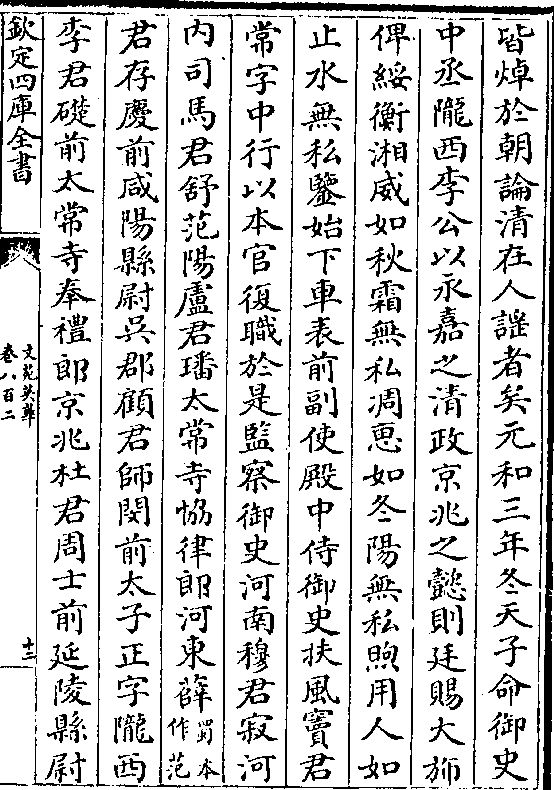 皆焯於朝論清在人謡者矣元和三年冬天子命御史
中丞隴西李公以永嘉之清政京兆之懿則廷賜大斾
俾綏衡湘威如秋霜無私凋恵如冬陽無私煦用人如
止水無私鑒始下車表前副使殿中侍御史扶風竇君
常字中行以本官復職於是監察御史河南穆君寂河
内司馬君舒范陽盧君璠太常寺恊律郎河東薛蜀本作范
君存慶前咸陽縣尉吳郡顧君師閔前太子正字隴西
李君礎前太常寺奉禮郎京兆杜君周士前延陵縣尉
欽定四庫全書
文苑英華
卷八百二
十三